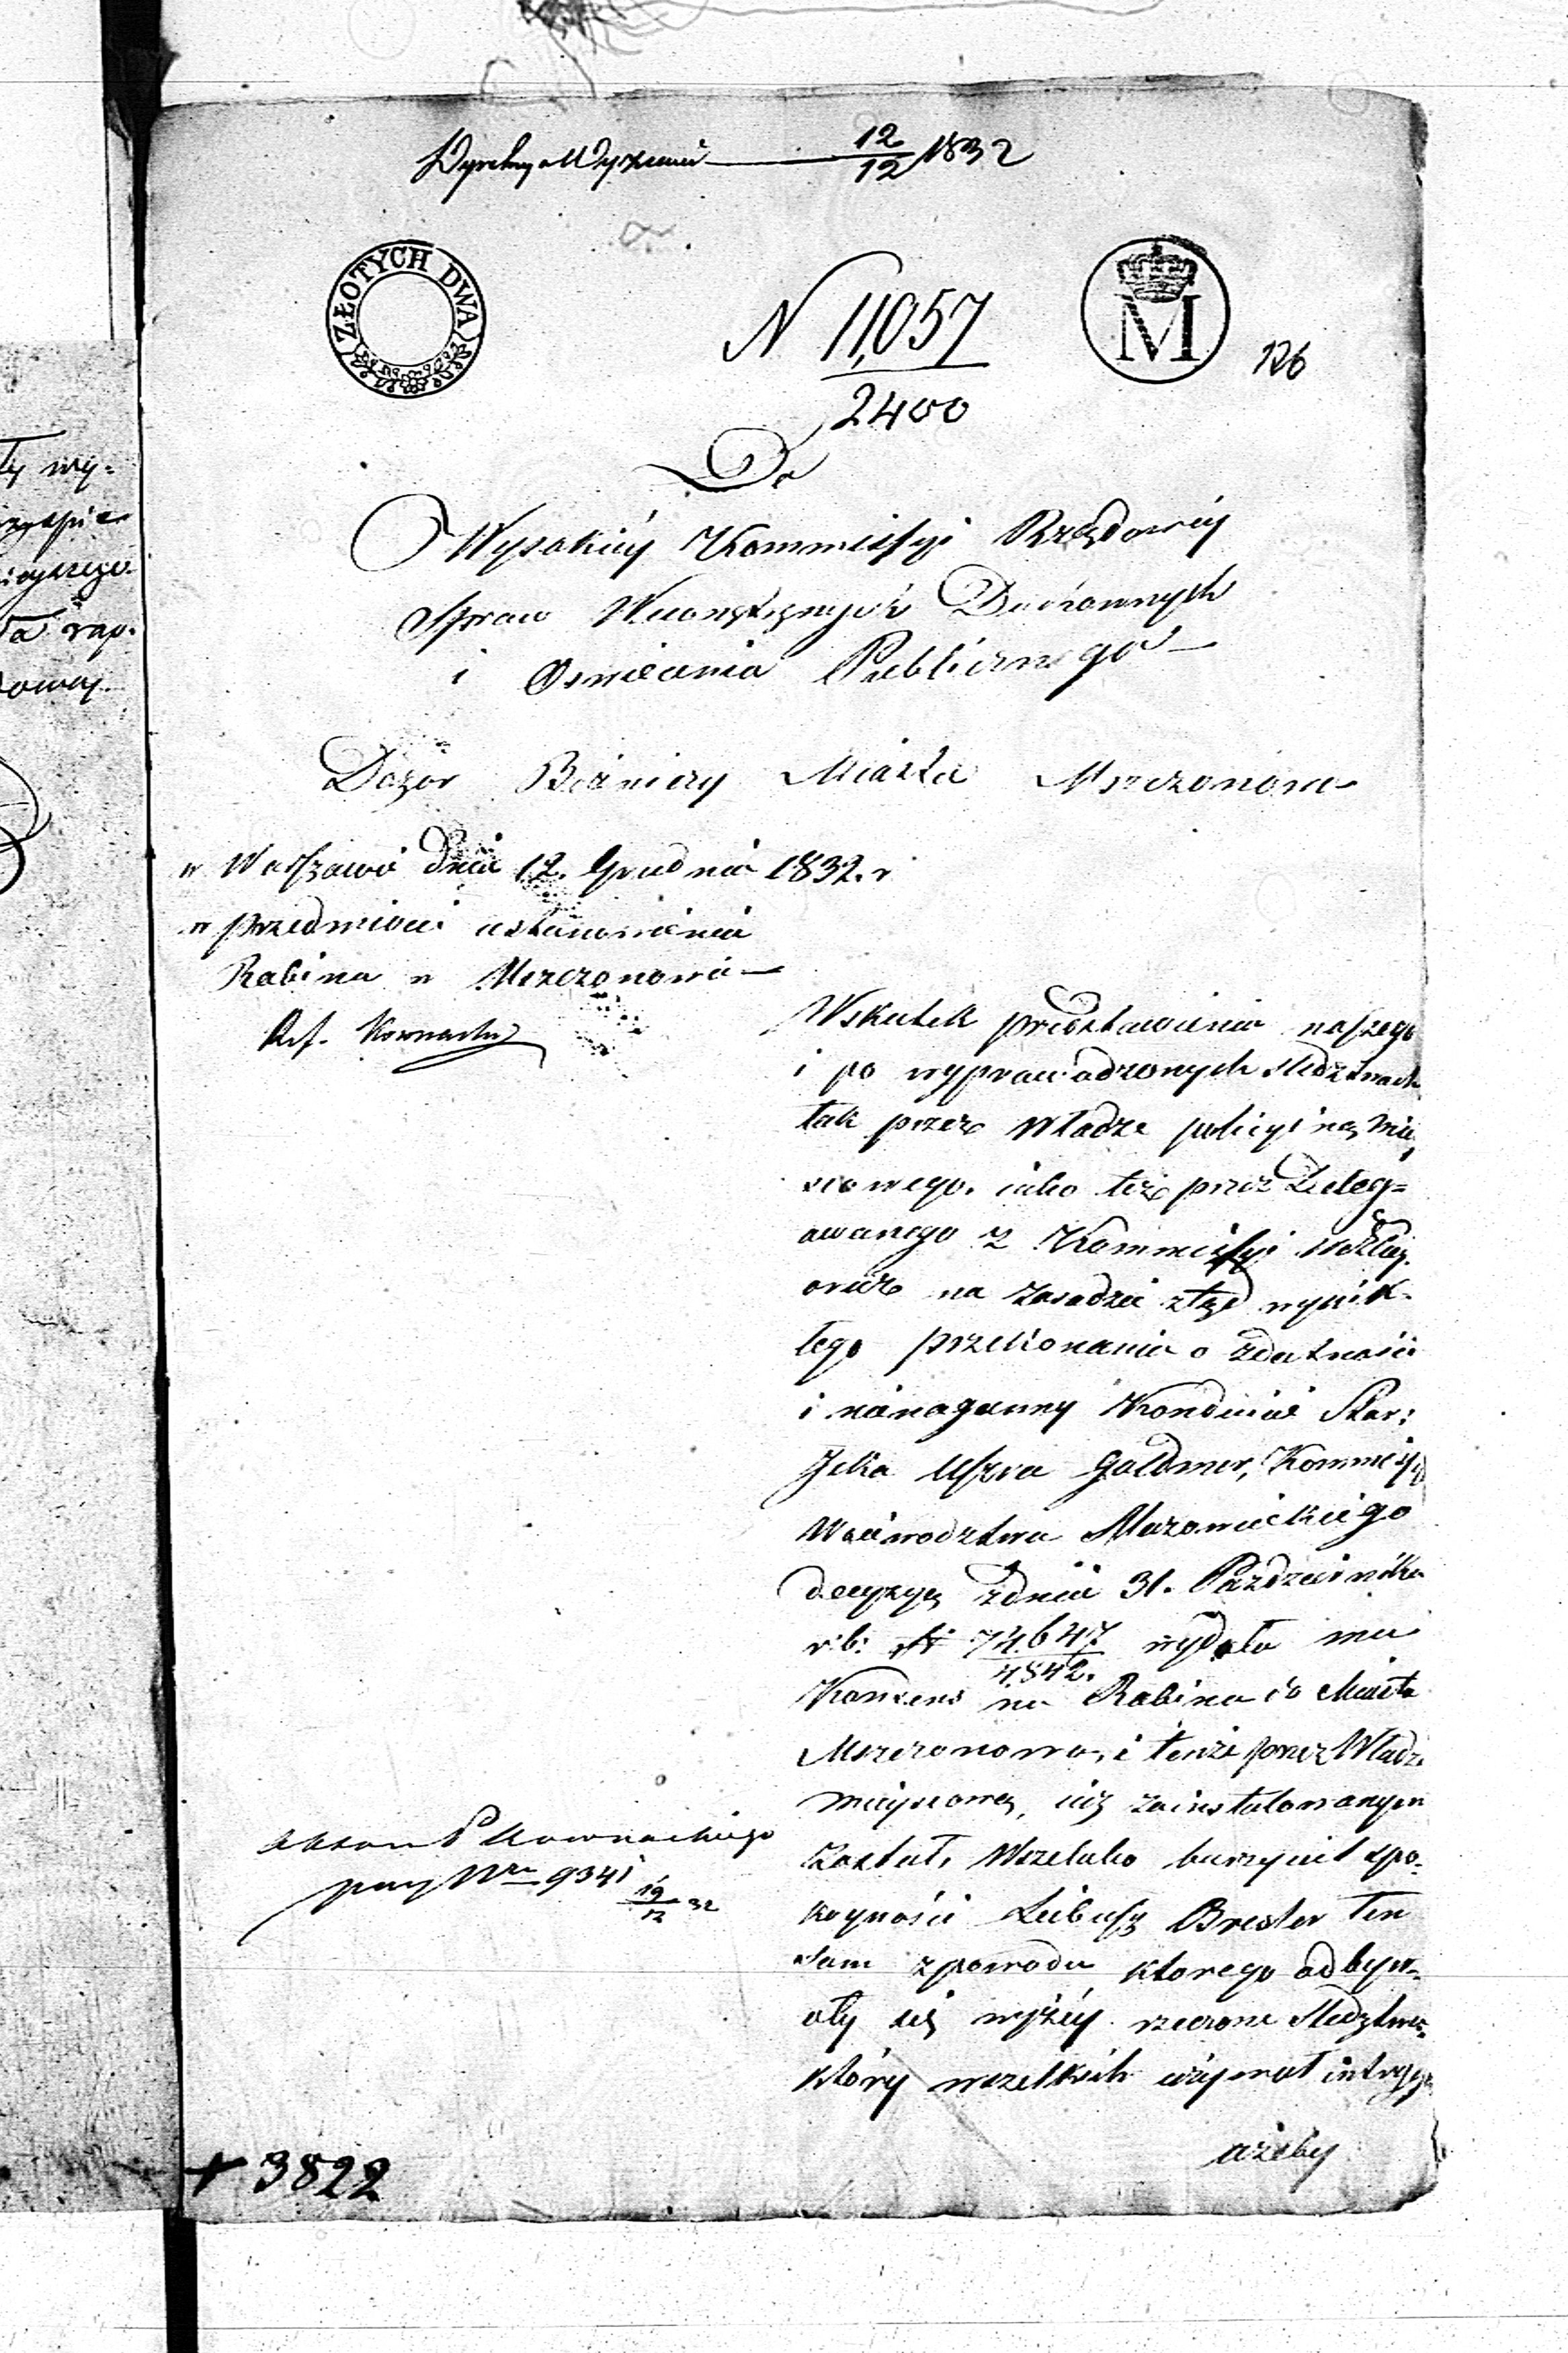 12/12 1832
ZŁOTYCH DWA
N 11,057
2400
M
126
Do
Wysokiéy Kommissyi Rządowéy
Spraw Wewnętrznych Duchownych
i Oswiecenia Publicznego
Dozor Bożniczy Miasta Mszczonowa
w Warszawie dnia 12. Grudnia 1832. r
w przedmiocie ustanowienia
Rabina w Mszczonowie
Ref. Kownacki
Wskutek przedstawienia naszego
i po wyprowadzonych sledztwach
tak przez Władze policyiną Miey
scowego. iako też przez Deleg=
owanego z Kommissyi
oraz na zasadzie ztąd wynik
łego przekonania o zdatności
i nienaganney Konduicie Star:
Icka Uszra Goldmer, Kommissya
Woiewodztwa Mazowieckiego
decyzyą zdnia 31. Pazdziernika
r: b: N 74647/4842. wydała mu
Konsens na Rabina do Miasta
Mszczonowa, i tenże przez Władze
mieyscową, iuż zainstalowanym
został, Wszelako burzyciel spo-
koyności Leibusz Bresler ten
sam z powodu ktorego odbyw-
ały się wyżéy rzeczone sledztwa,
który wszelkich używał intryg
ażeby
P Kownackiego
przy Nrze 9341
19/12 32
3822
ty wy=
rap.